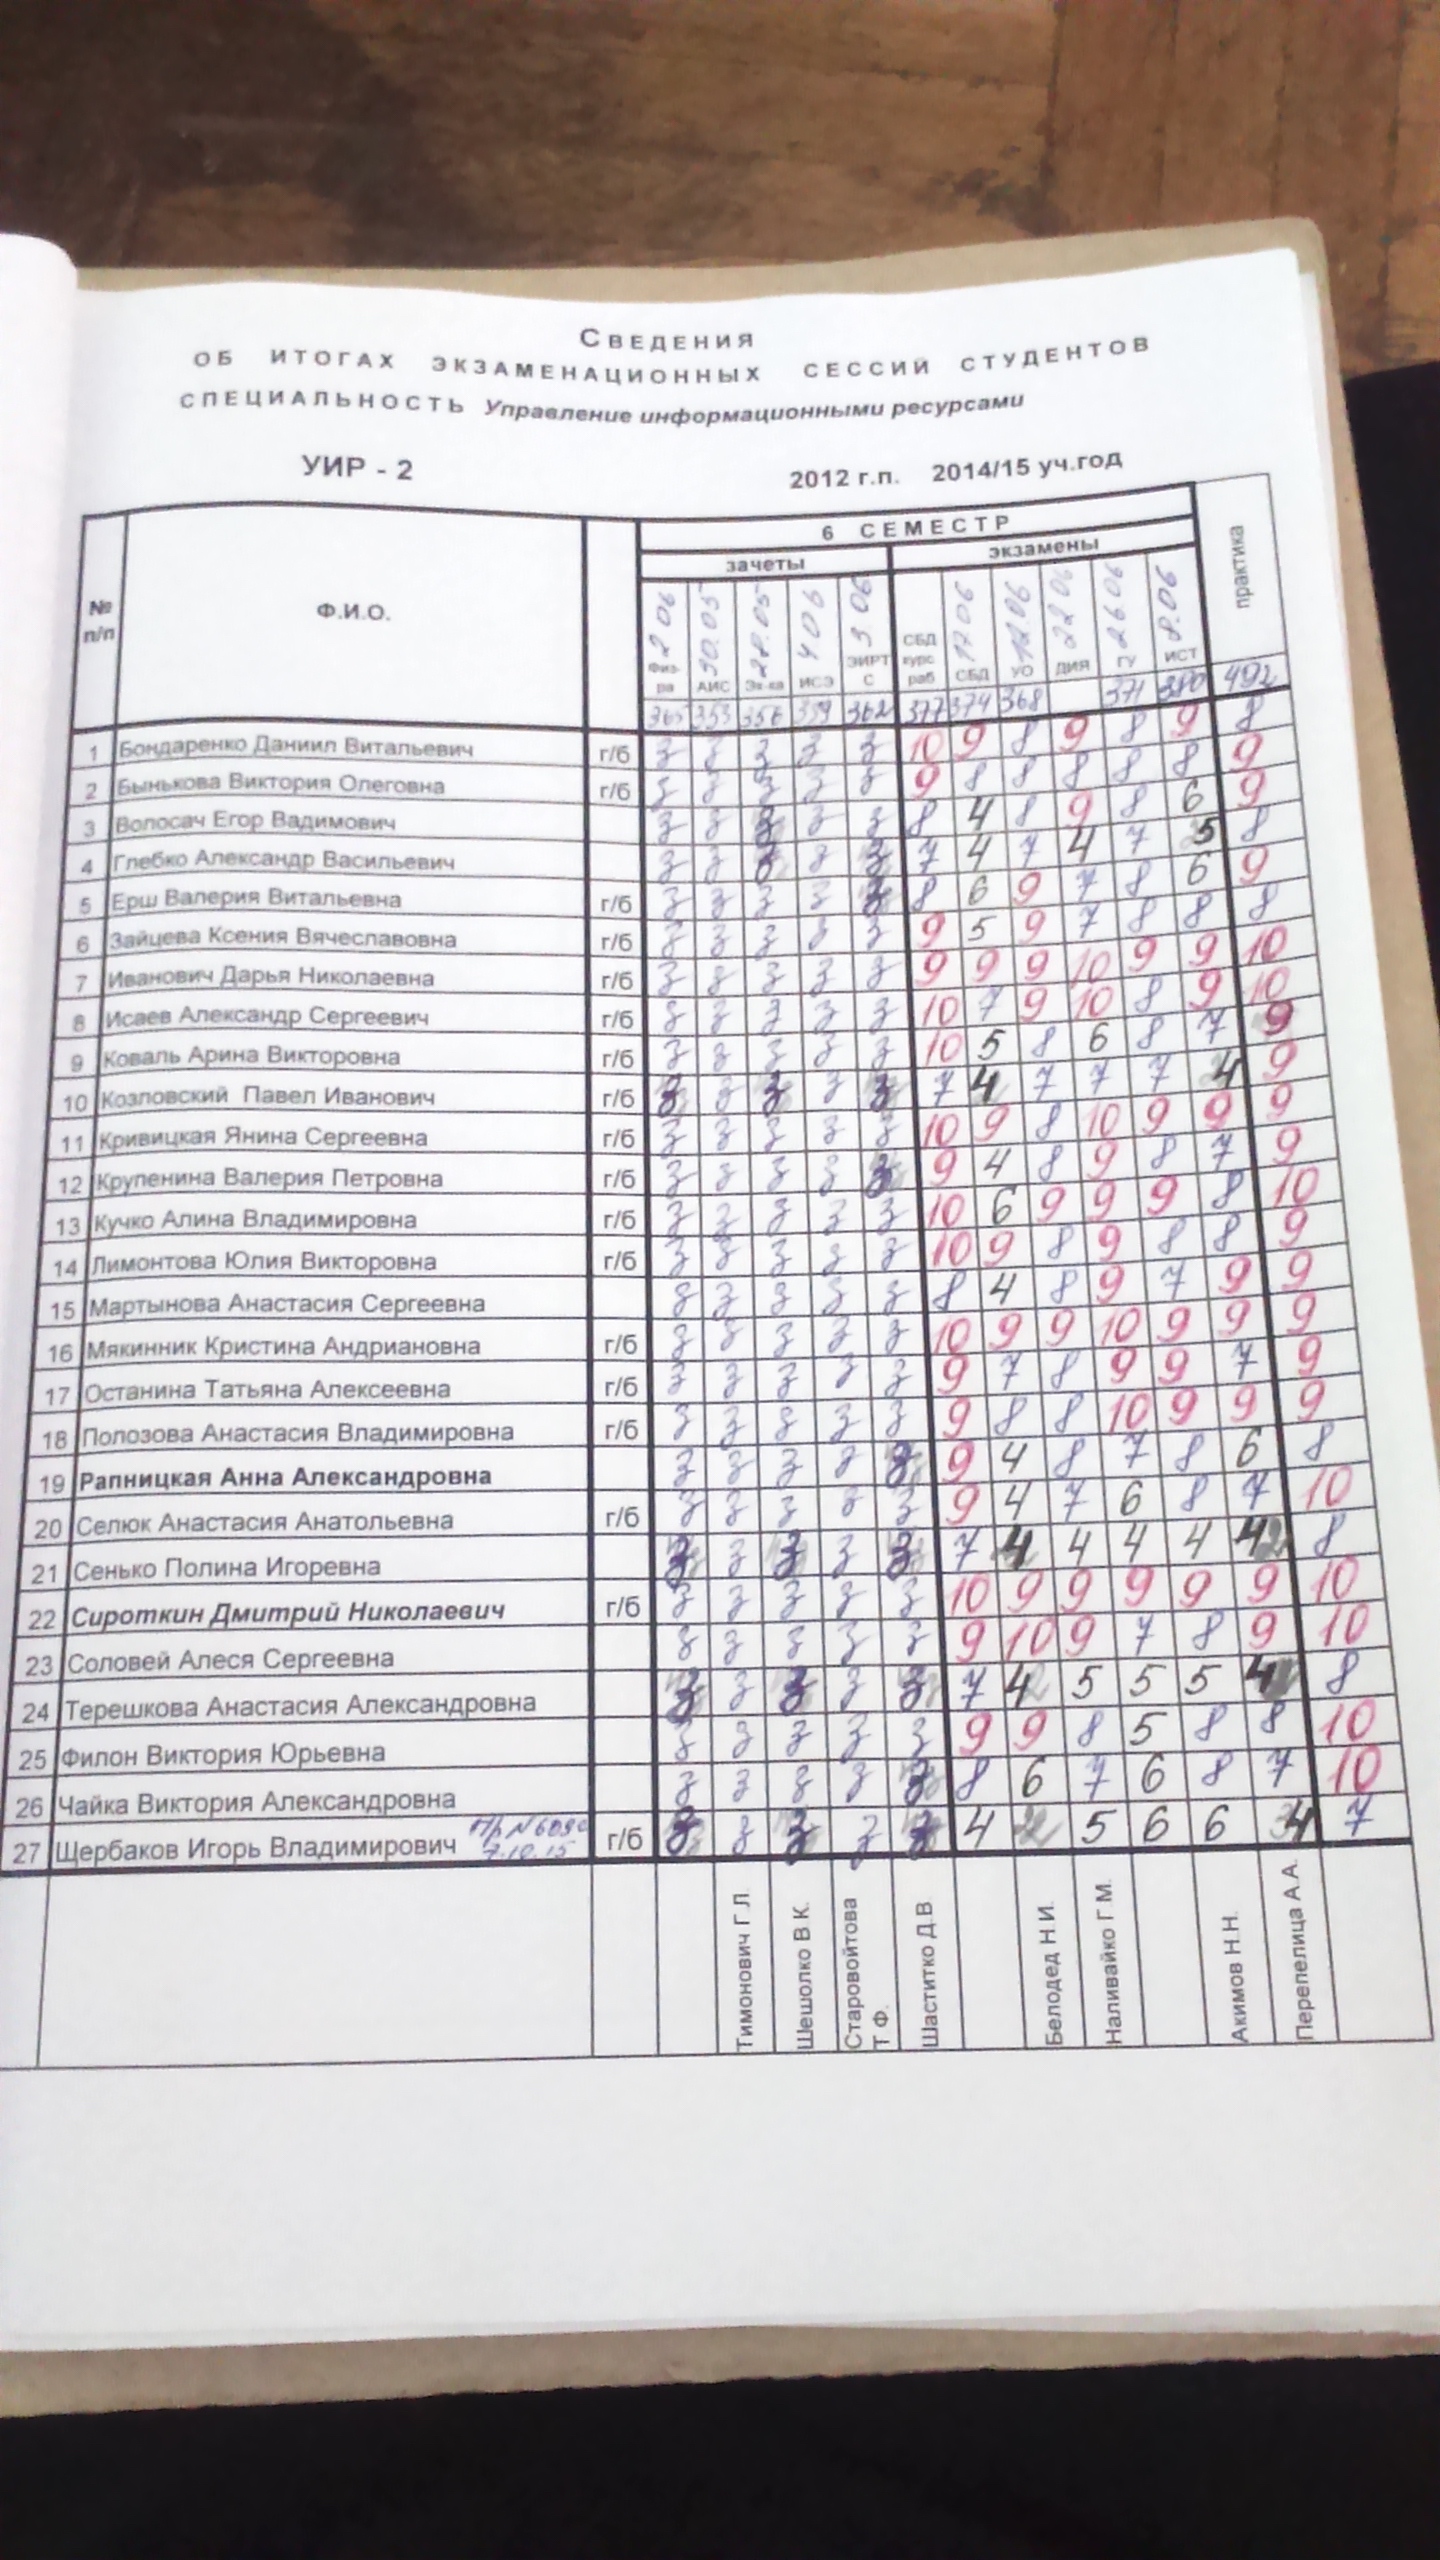 СВЕДЕНИЯ
ОБ ИТОГАХ ЭКЗАМЕНАЦИОННЫХ СЕССИЙ СТУДЕНТОВ
СПЕЦИАЛЬНОСТЬ Управление информационными ресурсами
УИР - 2 2012 г.п. 2014/15 уч.год
№ п/п Ф.И.О. 6 СЕМЕСТР практика
зачеты экзамены
2.06 30.05 28.05 4 06 3.06 17.06 12.06 22 06 26 06 8.06
Физ-ра АИС Эк-ка ИСЭ ЭИРТС СБД курс раб СБД УО ДИЯ ГУ ИСТ
365 353 356 359 362 377 374 368 371 380 492
1 Бондаренко Даниил Витальевич г/б з з з з з 10 9 8 9 8 9 8
2 Бынькова Виктория Олеговна г/б з з з з з 9 8 8 8 8 8 9
3 Волосач Егор Вадимович з з з з з 8 4 8 9 8 6 9
4 Глебко Александр Васильевич з з з з з 7 4 7 4 7 5 8
5 Ерш Валерия Витальевна г/б з з з з з 8 6 9 7 8 6 9
6 Зайцева Ксения Вячеславовна г/б з з з з з 9 5 9 7 8 8 8
7 Иванович Дарья Николаевна г/б з з з з з 9 9 9 10 9 9 10
8 Исаев Александр Сергеевич г/б з з з з з 10 7 9 10 8 9 10
9 Коваль Арина Викторовна г/б з з з з з 10 5 8 6 8 7 9
10 Козловский Павел Иванович г/б з з з з з 7 4 7 7 7 4 9
11 Кривицкая Янина Сергеевна г/б з з з з з 10 9 8 10 9 9 9
12 Крупенина Валерия Петровна г/б з з з з з 9 4 8 9 8 7 9
13 Кучко Алина Владимировна г/б з з з з з 10 6 9 9 9 8 10
14 Лимонтова Юлия Викторовна г/б з з з з з 10 9 8 9 8 8 9
15 Мартынова Анастасия Сергеевна з з з з з 8 4 8 9 7 9 9
16 Мякинник Кристина Андриановна г/б з з з з з 10 9 9 10 9 9 9
17 Останина Татьяна Алексеевна г/б з з з з з 9 7 8 9 9 7 9
18 Полозова Анастасия Владимировна г/б з з з з з 9 8 8 10 9 9 9
19 Рапницкая Анна Александровна з з з з з 9 4 8 7 8 6 8
20 Селюк Анастасия Анатольевна г/б з з з з з 9 4 7 6 8 7 10
21 Сенько Полина Игоревна з з з з з 7 4 4 4 4 4 8
22 Сироткин Дмитрий Николаевич г/б з з з з з 10 9 9 9 9 9 10
23 Соловей Алеся Сергеевна з з з з з 9 10 9 7 8 9 10
24 Терешкова Анастасия Александровна з з з з з 7 4 5 5 5 4 8
25 Филон Виктория Юрьевна з з з з з 9 9 8 5 8 8 10
26 Чайка Виктория Александровна з з з з з 8 6 7 6 8 7 10
27 Щербаков Игорь Владимирович 7.10.15 г/б з з з з з 4 2 5 6 6 4 7
Тимонович Г.Л. Шешолко В.К. Старовойтова Т.Ф. Шаститко Д.В Белодед Н.И. Наливайко Г.М. Акимов Н.Н. Перепелица А.А.